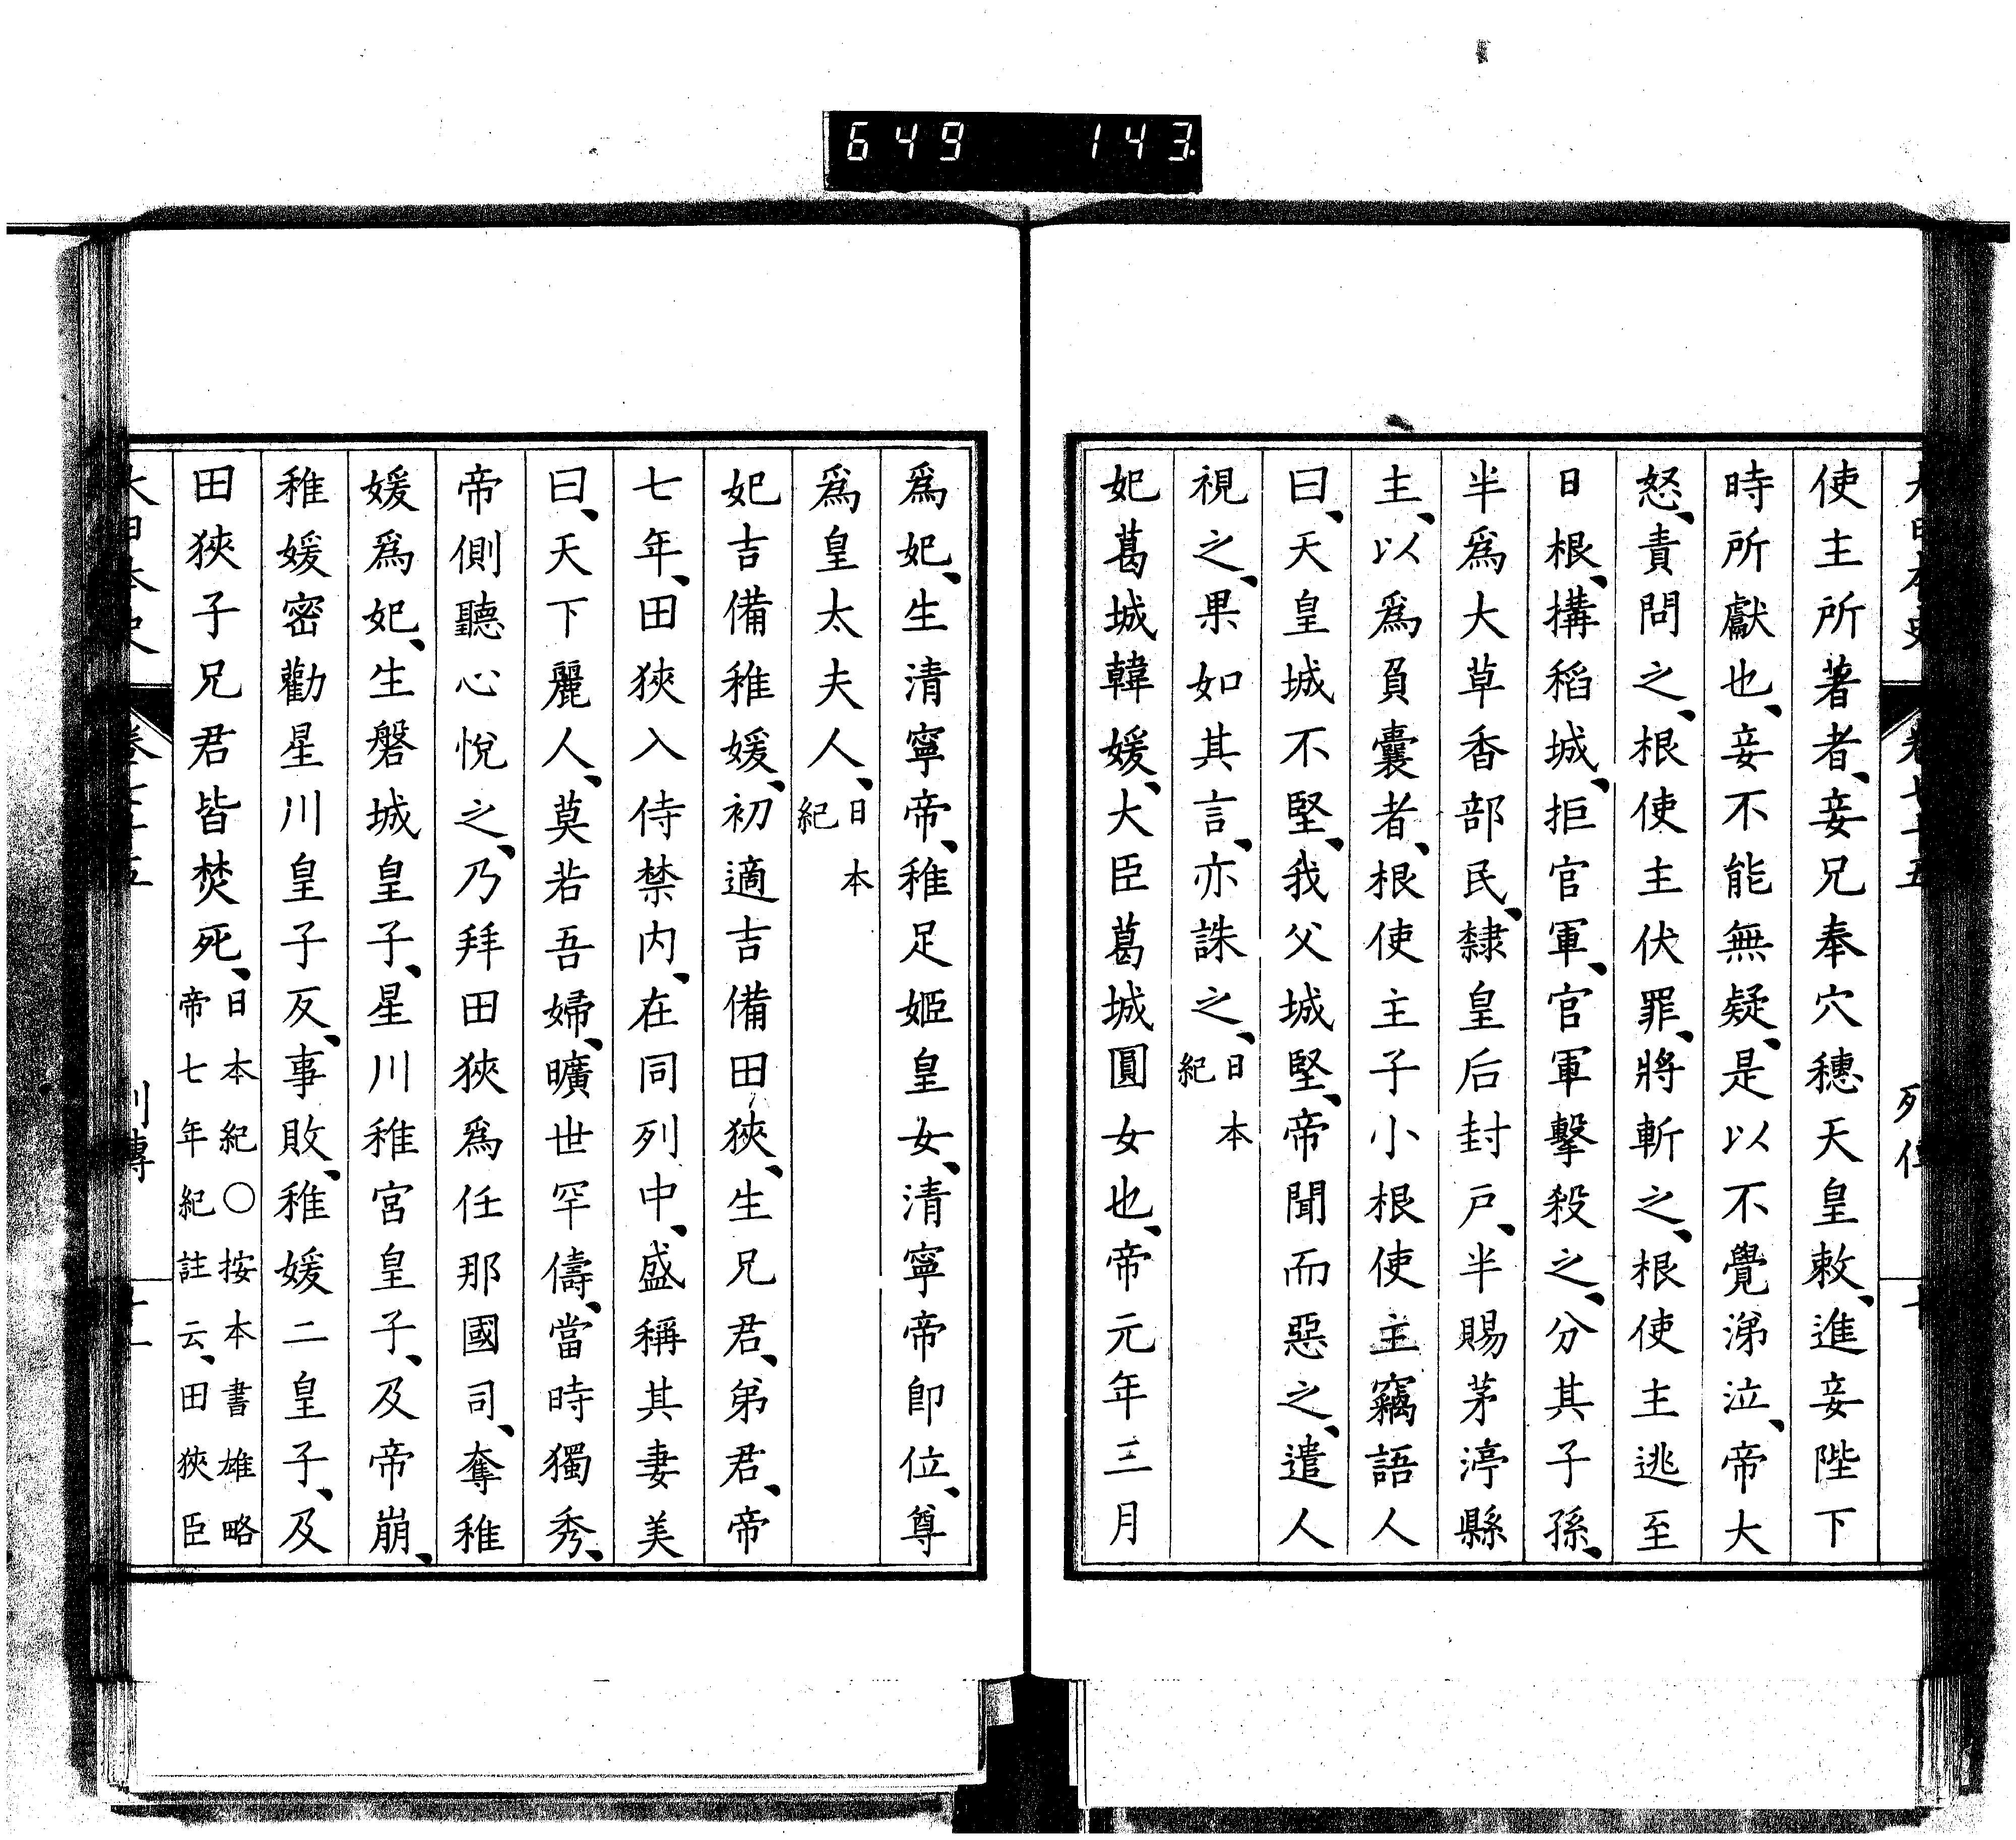 649 143
使主所著者、妾兄奉穴穗天皇敕、進妾陛下
時所獻也、妾不能無疑、是以不覺涕泣、帝大
怒、責問之、根使主伏罪、將斬之、根使主逃至
日根、搆稻城、拒官軍、官軍擊殺之、分其子孫、
半爲大草香部民、隸皇后封戶、半賜茅渟縣
主、以爲負囊者、根使主子小根使主竊語人
曰、天皇城不堅、我父城堅、帝聞而惡之、遣人
視之、果如其言、亦誅之、日本
紀
妃葛城韓媛、大臣葛城圓女也、帝元年三月
爲妃、生清寧帝、稚足姬皇女、清寧帝卽位、尊
爲皇太夫人、日本
紀
妃吉備稚媛、初適吉備田狹、生兄君、弟君、帝
七年、田狹入侍禁内、在同列中、盛稱其妻美
曰、天下麗人、莫若吾婦、曠世罕儔、當時獨秀、
帝側聽心悅之、乃拜田狹爲任那國司、奪稚
媛爲妃、生磐城皇子、星川稚宮皇子、及帝崩、
稚媛密勸星川皇子反、事敗、稚媛二皇子、及
田狹子兄君皆焚死、日本紀○按本書雄略
帝七年紀註云、田狹臣
大日本史 卷七十五 列傳 十一